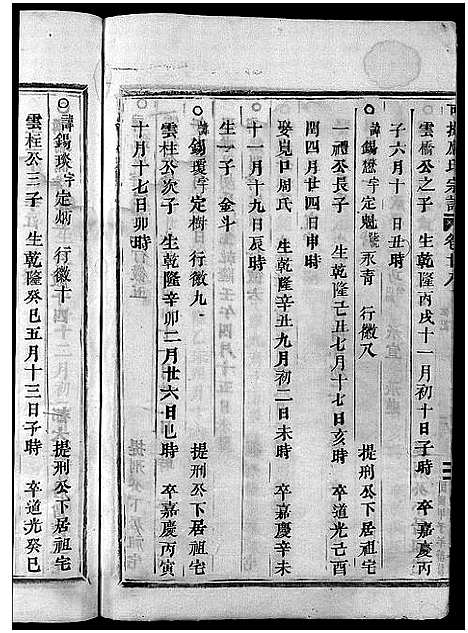 宗譜 卷廿八
雲橋公之子 生乾隆丙戌十一月初十日子時 卒嘉慶丙
子六月十 日丑時
○諱錫懋字定魁號永青 行徽八 提刑公下居祖宅
一禮公長子 生乾隆己丑七月十七日亥時 卒道光己酉
閏四月廿四日申時
娶見口周氏 生乾隆辛丑九月初二日未時 卒嘉慶辛未
十一月十九日辰時
生一子 金斗
○諱錫瓊字定樹 行徽九 提刑公下居祖宅
雲柱公次子 生乾隆辛卯二月廿六日巳時 卒嘉慶丙寅
十月十七日卯時
○諱錫琰字定炳 行徽十 提刑公下居祖宅
雲柱公三子 生乾隆癸巳五月十三日子時 卒道光癸巳